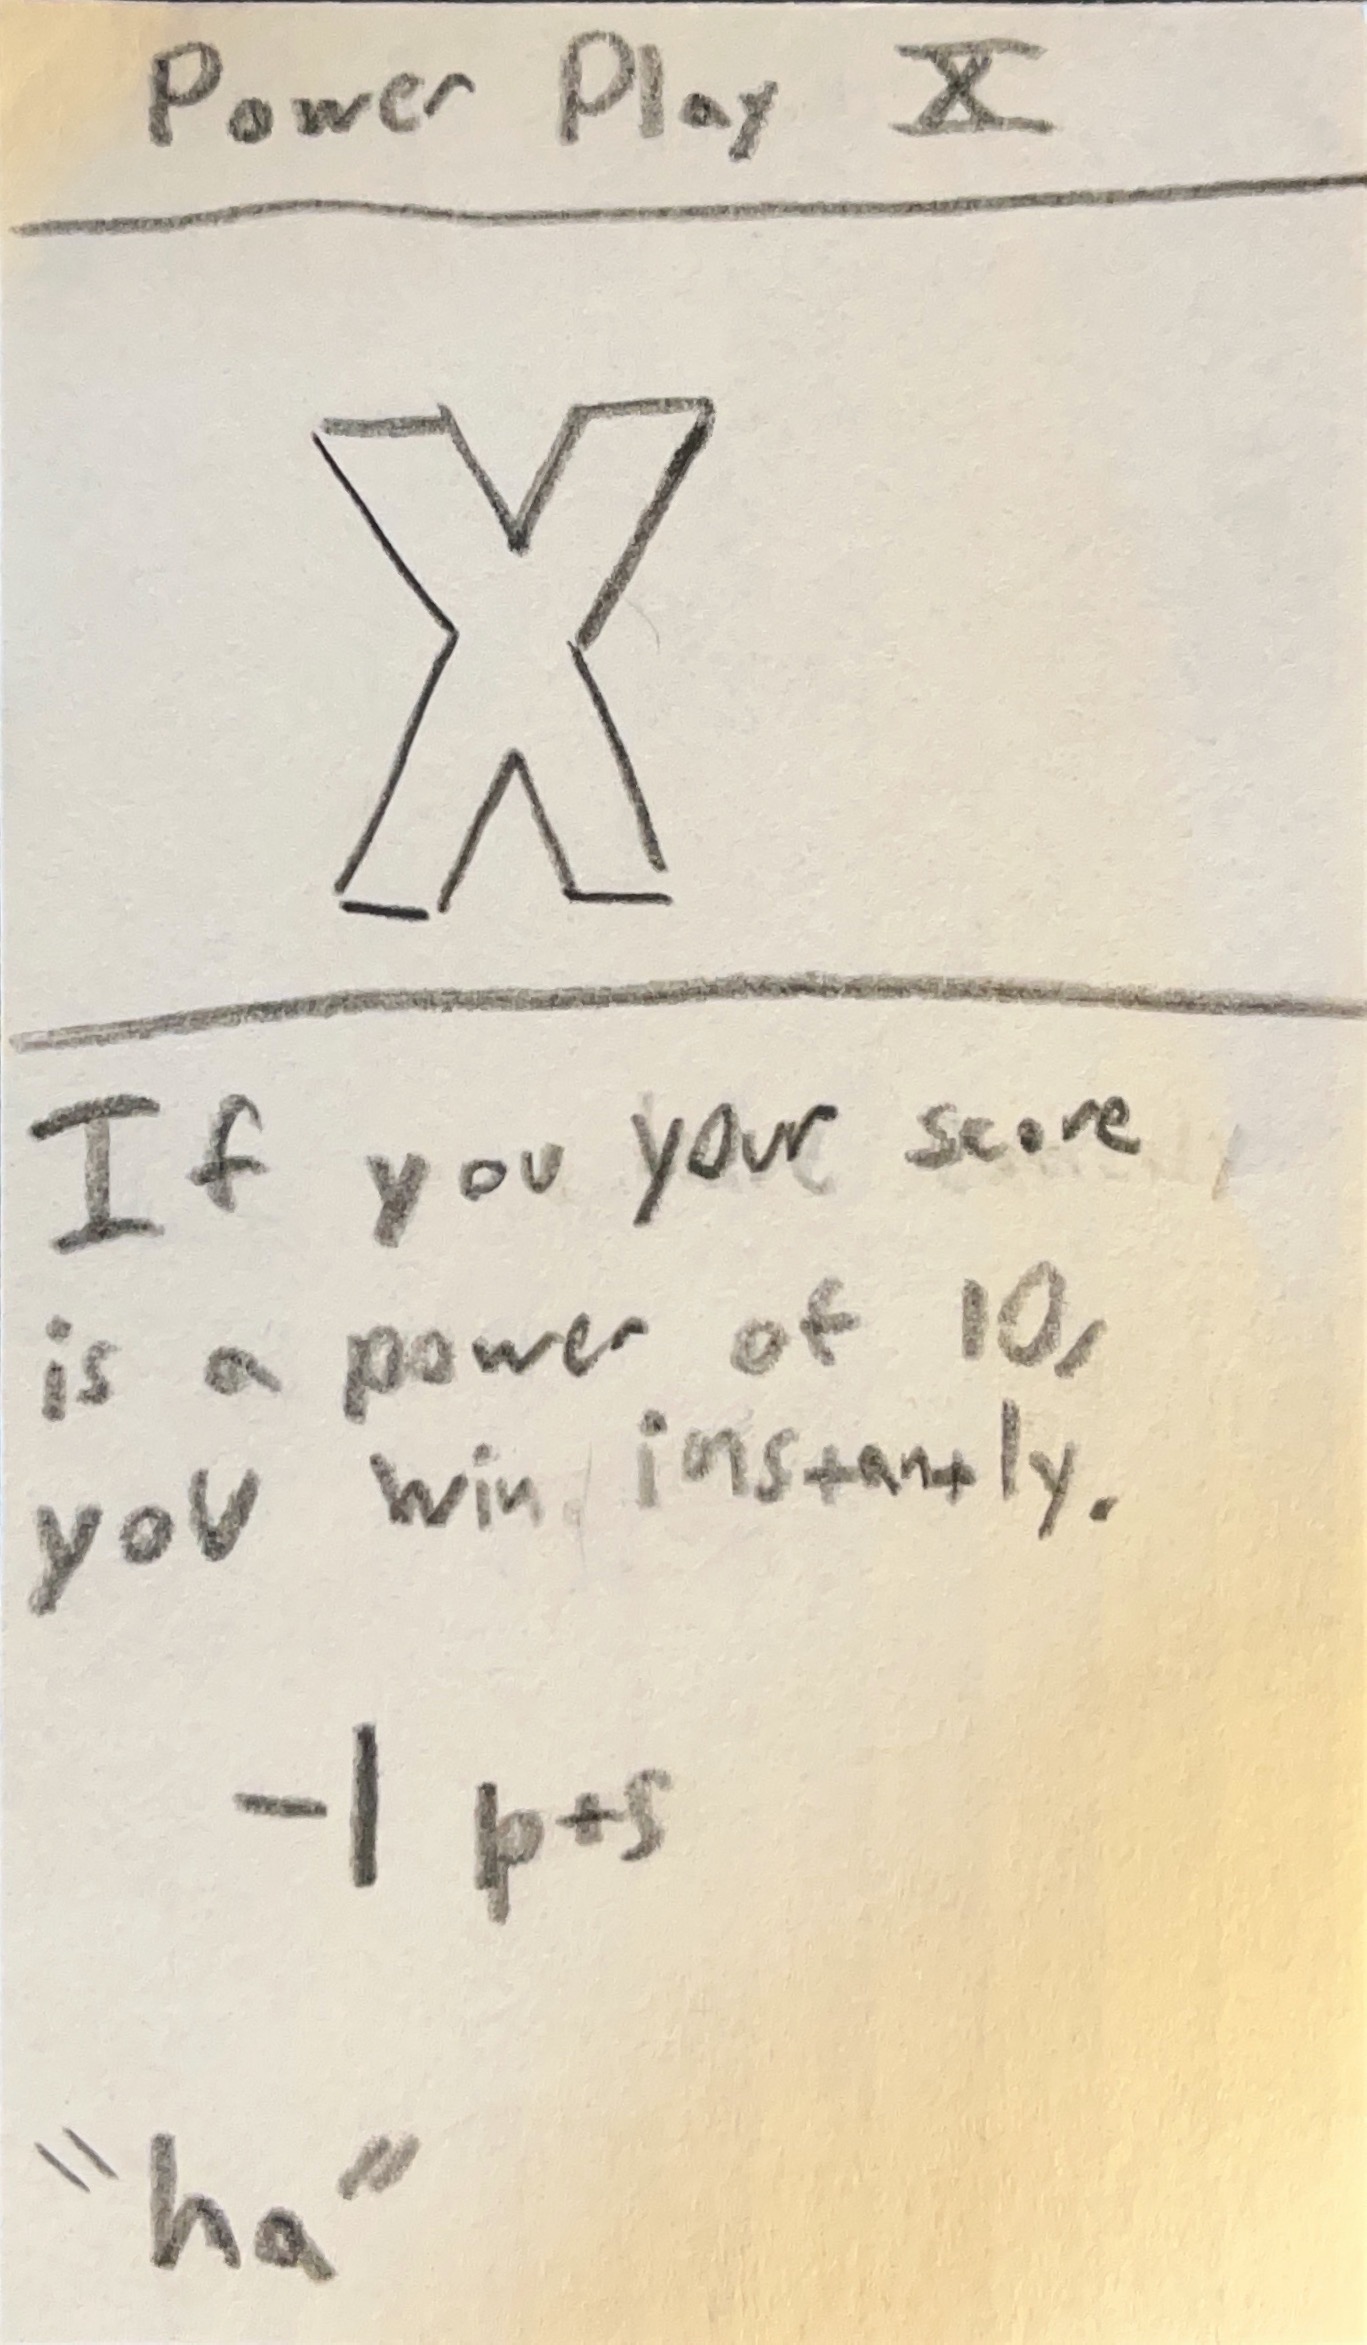 Power Play X
X
If you your score
is a power of 10,
you win instantly.
-1 pts
"ha"